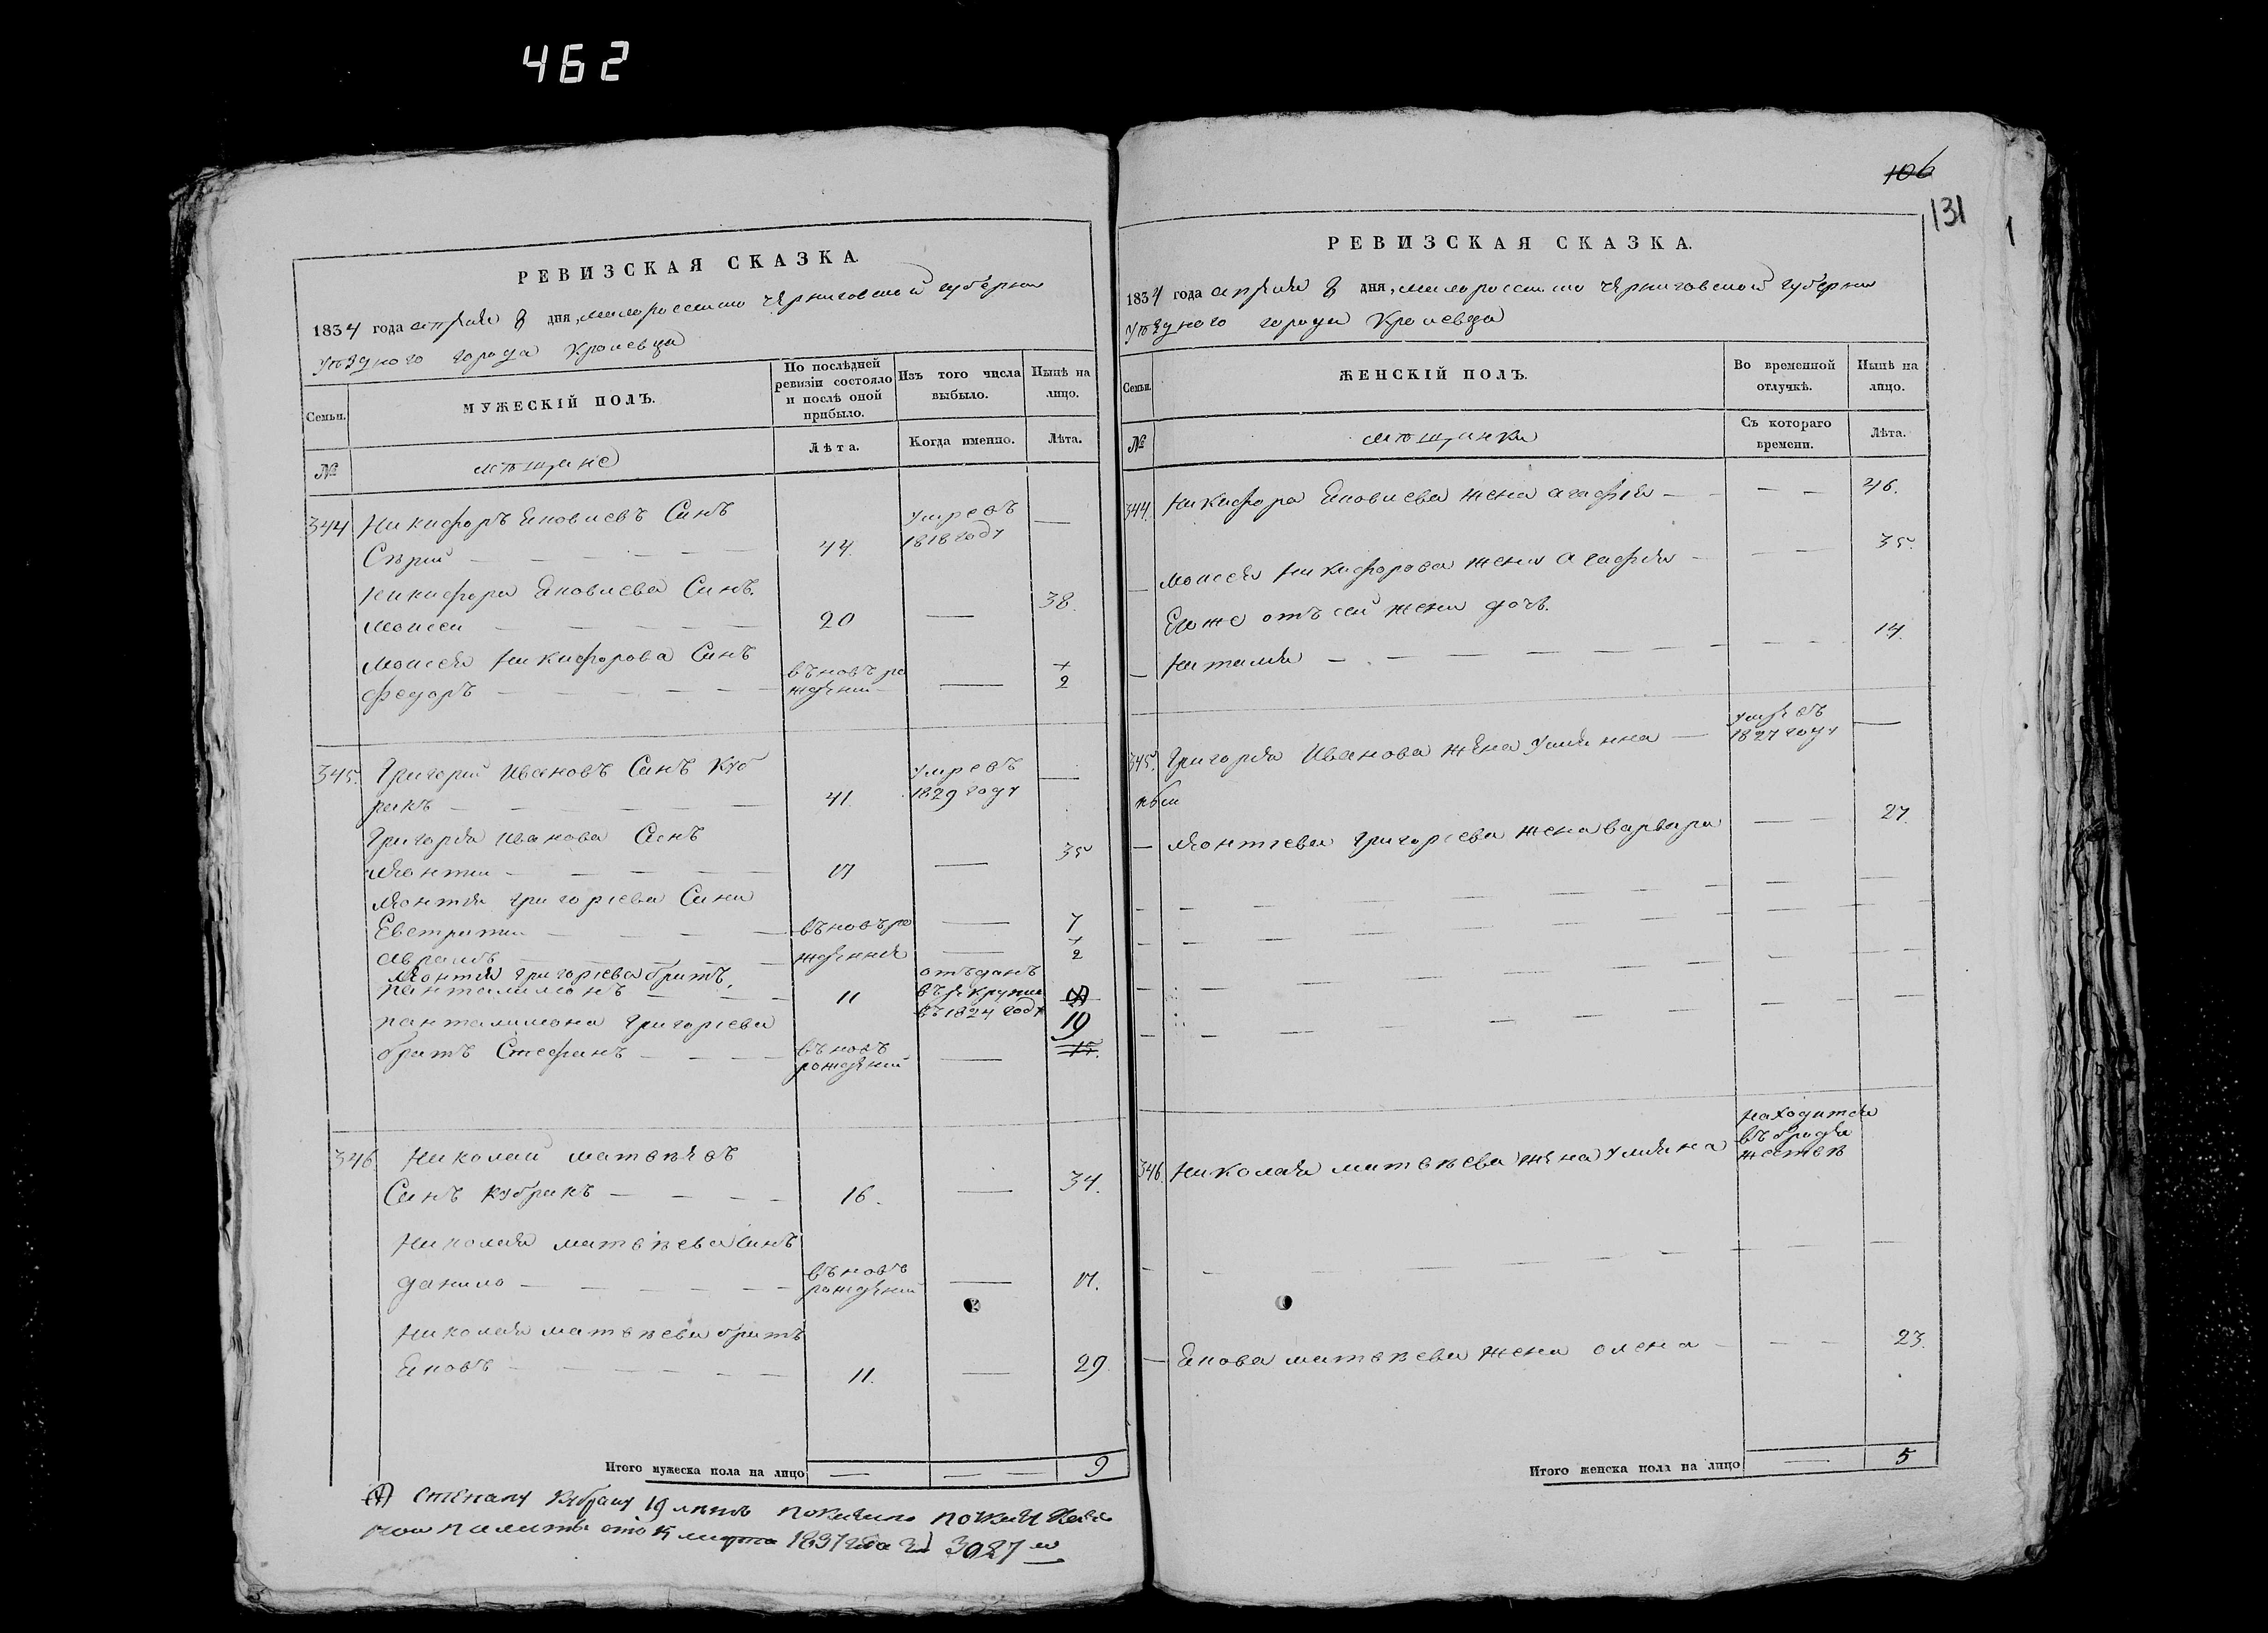 462
106
131
1
РЕВИЗСКАЯ СКАЗКА.
1834 года апреля 8 дня, малороссийско черниговской губернии
уѣздного города Кролевца
Семьи.
МУЖЕСКІЙ ПОЛЪ.
По послѣдней ревизіи состояло и послѣ оной прибыло.
Изъ того числа выбыло.
Нынѣ на лицо.
№
мѣщане
Лѣта.
Когда именно.
Лѣта.
344 Никифоръ Яковлевъ Синъ
Сѣрий 44. умревъ 1818 году
никифора Яковлева Синъ
моисеи 20 38.
моисея Никифорова Синъ
федоръ въновъ рождений 2
345. Григорий Ивановъ Синъ Куб
рикъ 41. умревъ 1829 году
Григория иванова Синъ
леонтии 17 35
леонтия григориева Сини
Евстратии въновъ ро 7
Аврамъ ждении 2
леонтия григориева братъ
панталимонъ 11 отъданъ въ рекруты въ 1824 году
панталимона григориева 19
братъ Стефанъ въновъ рождений 15.
346 Николаи матвѣевъ
Синъ кубрикъ 16. 34.
Николая матвѣева Синъ
данило въновъ рождений 17.
Николая матвѣева братъ
Яковъ 11. 29
Итого мужеска пола на лицо 9
Степану Кубрику 19 лѣтъ показано по
палаты отъ марта 1837 года за 3087
РЕВИЗСКАЯ СКАЗКА.
1834 года апреля 8 дня, малороссийско черниговской губернии
уѣздного города Кролевца
Семьи.
ЖЕНСКІЙ ПОЛЪ.
Во временной отлучкѣ.
Нынѣ на лицо.
№
мѣщанки
Съ котораго времени.
Лѣта.
344. Никифора Яковлева жена агафия 46.
моисея Никифорова жена агафия 35.
Егоже отъ сеи жены дочь.
Наталия 14.
345. Григория Иванова жена улиянна умревъ 1827 году
леонтиева григориева жена варвара 27.
346. Николая матвѣева жена улияна находится въ бродяжествѣ
Якова матвѣева жена олена 23.
Итого женска пола на лицо 5